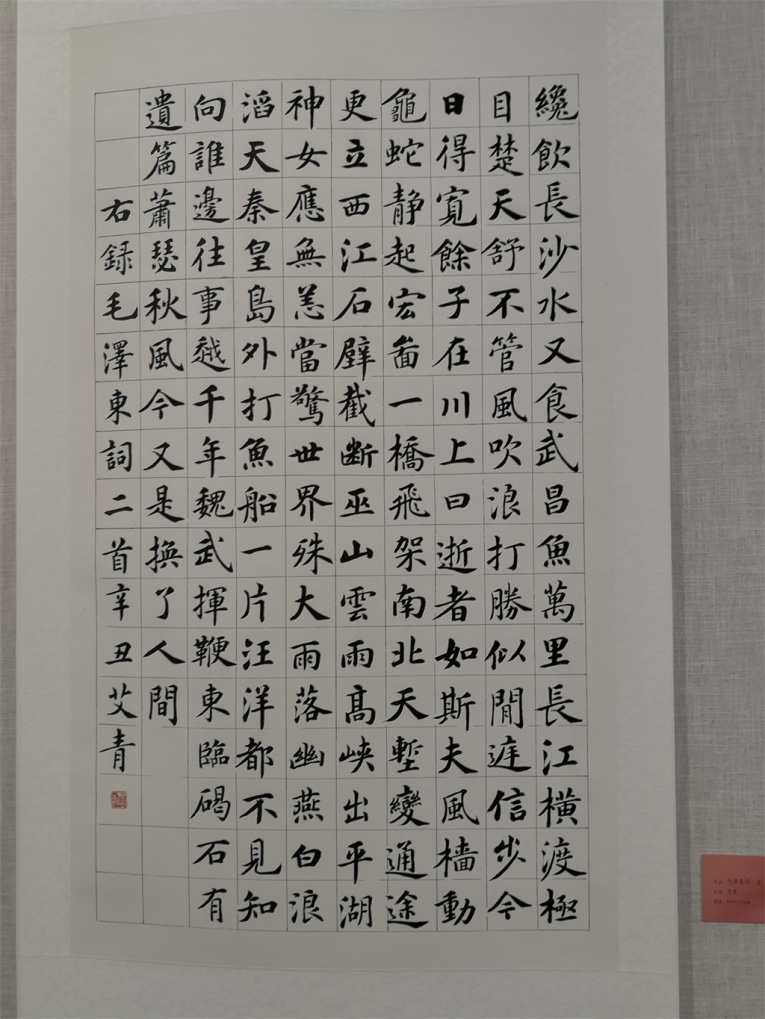 纔飲長沙水又食武昌魚萬里長江橫渡極
目楚天舒不管風吹浪打勝似閒庭信步今
日得寬餘子在川上曰逝者如斯夫風檣動
龜蛇静起宏啚一橋飛架南北天塹變通途
更立西江石壁截斷巫山雲雨高峽出平湖
神女應無恙當驚世界殊大雨落幽燕白浪
滔天秦皇島外打魚船一片汪洋都不見知
向誰邊往事越千年魏武揮鞭東臨碣石有
遺篇蕭瑟秋風今又是換了人間
右録毛澤東詞二首辛丑艾青